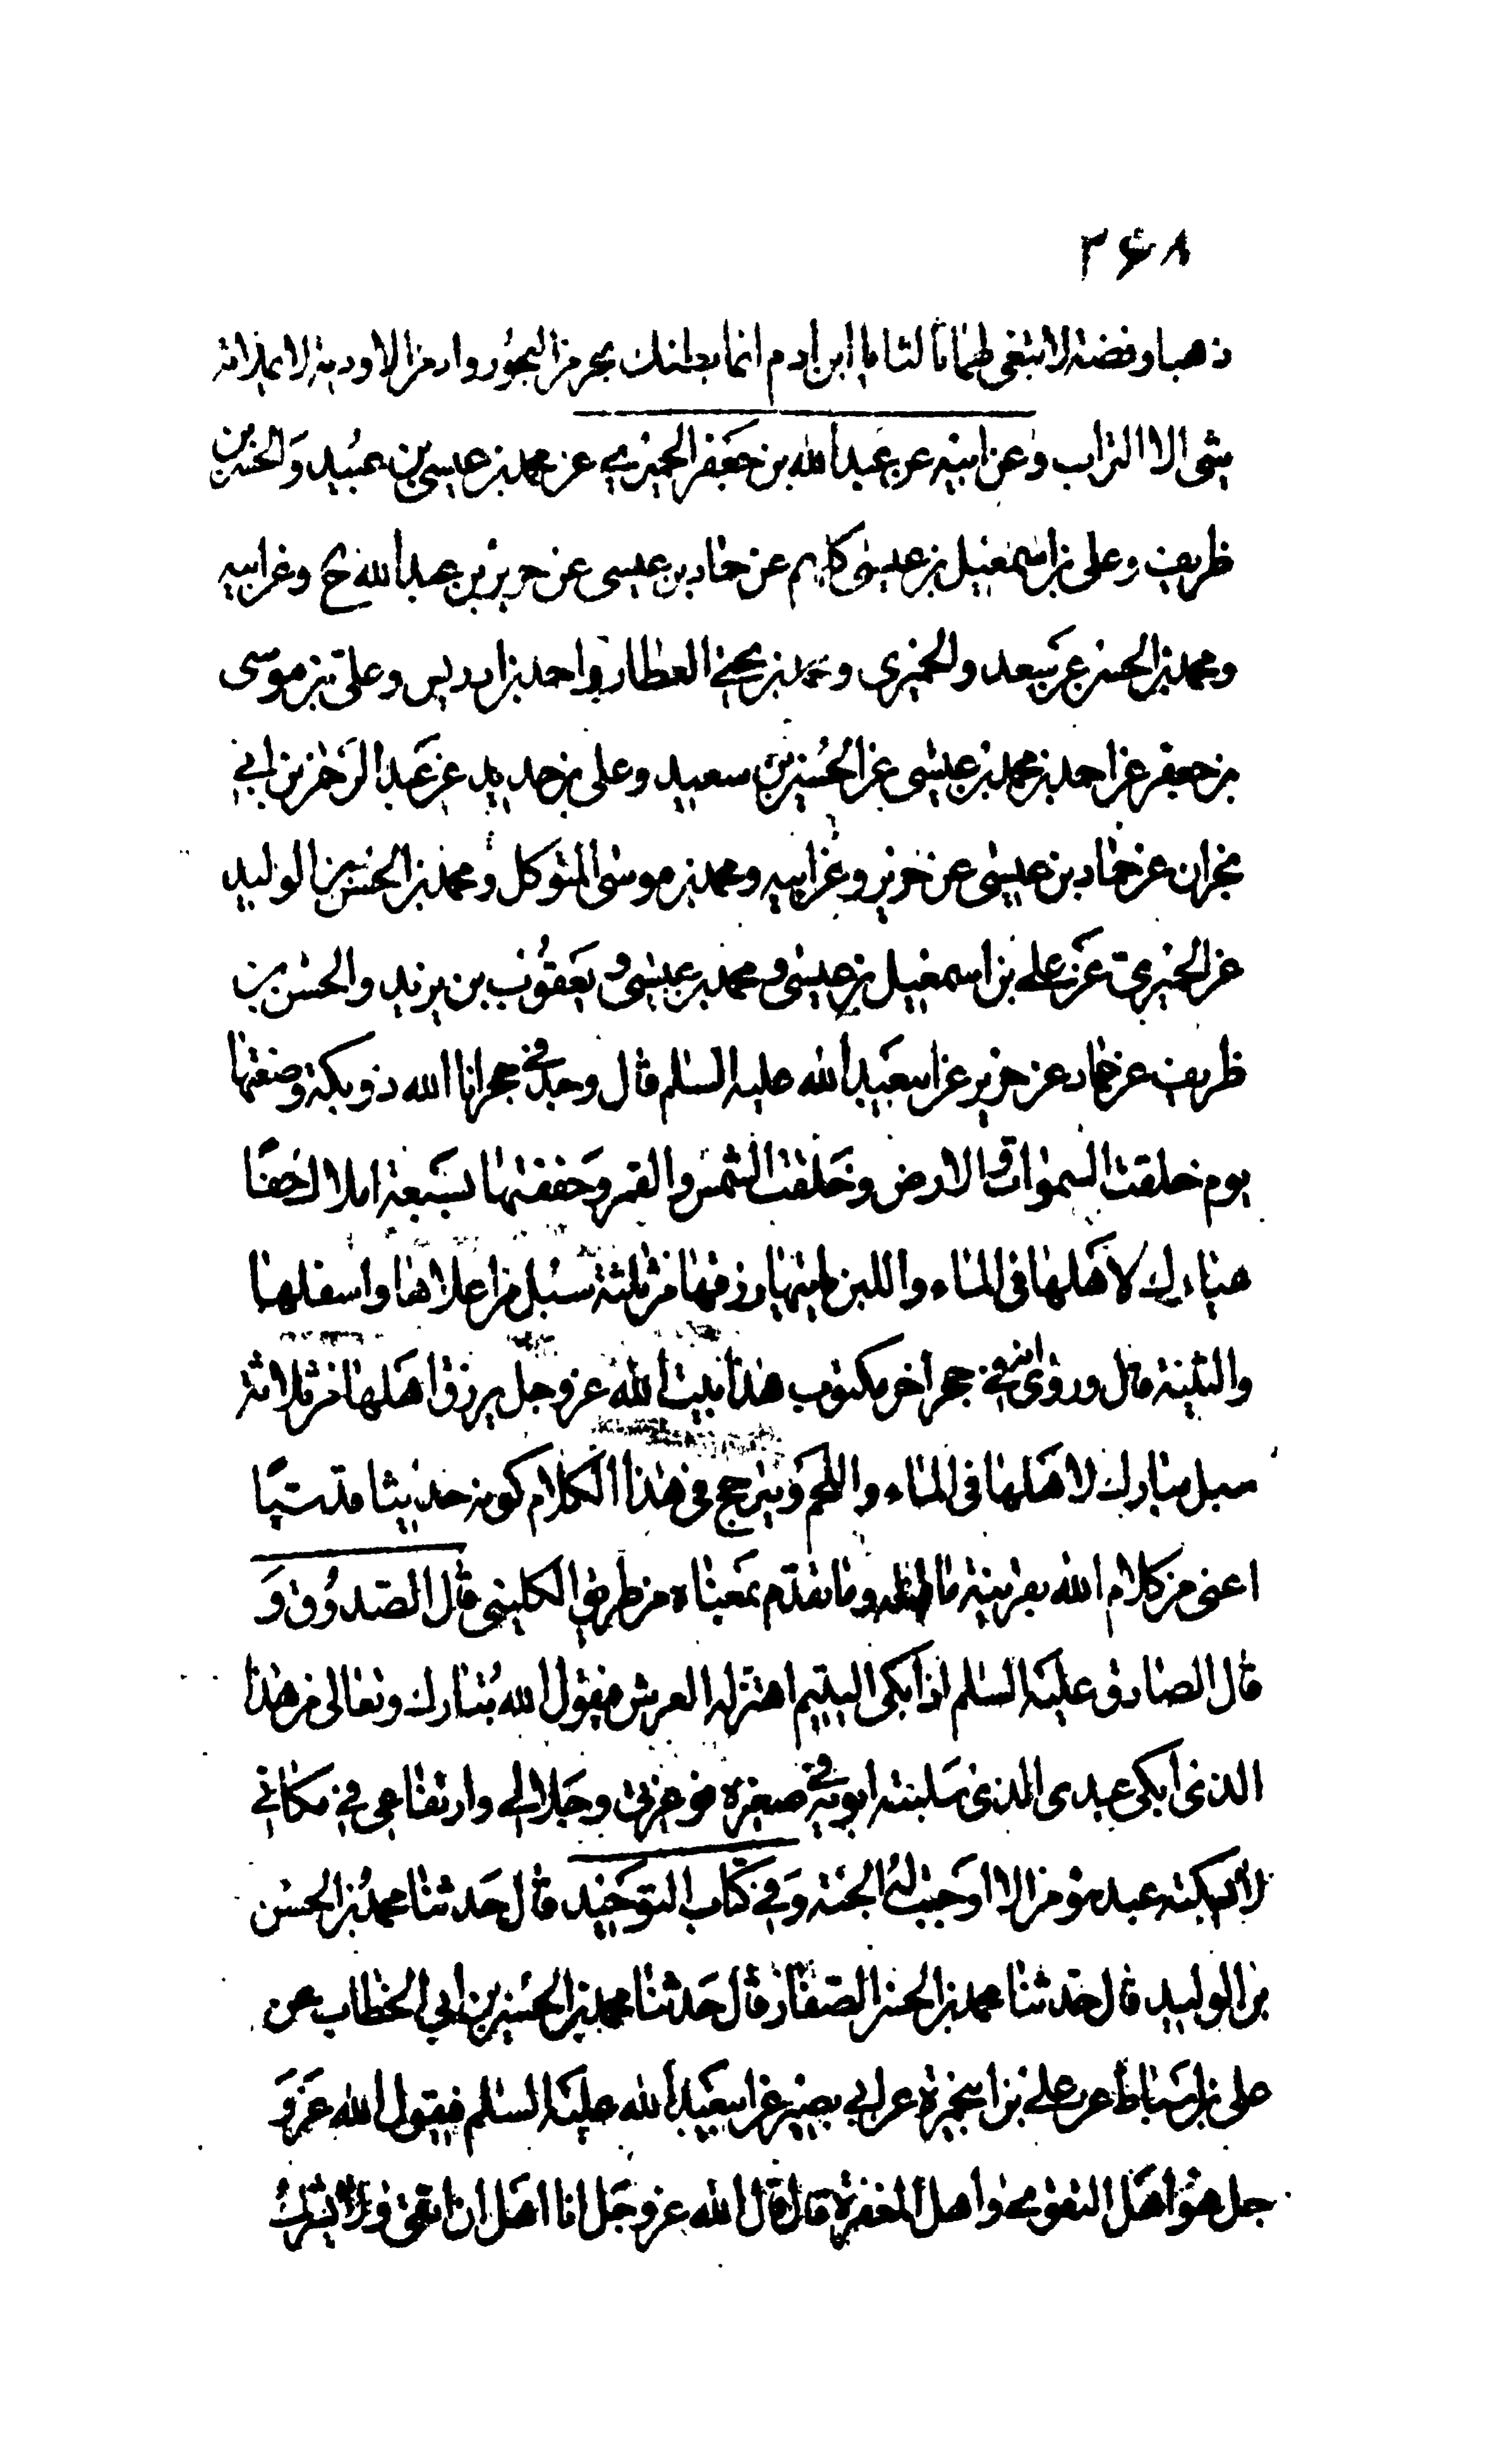 ۲۶۸
ذهبا وفضة لابتغى لهما ثالثا يا ابن ادم انما بطنك بحر من البحور واد من الاودية لا يملاه
شئ الا التراب وعن ابيه عن عبد الله بن جعفر الحميرى عن محمد بن عيسى بن عبيد والحسن بن
ظريف وعلى بن اسمعيل بن عيسى كلهم عن حماد بن عيسى عن حريز بن عبد الله ح وعن ابيه
ومحمد بن الحسن عن سعد والحميرى ومحمد بن يحيى العطار واحمد بن ادريس وعلى بن موسى
بن جعفر عن احمد بن محمد بن عيسى عن الحسين بن سعيد وعلى بن حديد عن عبد الرحمن بن ابى
نجران عن حماد بن عيسى عن حريز وعن ابيه ومحمد بن موسى المتوكل ومحمد بن الحسن بن الوليد
عن الحميرى عن على بن اسمعيل بن عيسى ومحمد بن عيسى ويعقوب بن يزيد والحسن بن
ظريف عن حماد عن حريز عن ابيعبد الله عليه السلم قال وجد فى حجر انا الله ذو بكة وضعتها
يوم خلقت السموات والارض وخلقت الشمس والقمر وحففتها بسبعة املاك حفا
مبارك لاهلها فى الماء واللبن ياتيها رزقها من ثلثة سبل من اعلاها واسفلها
والثنية قال وروى انه فى حجر اخر مكتوب هذا بيت الله عز وجل يرزق اهلها من ثلاثة
سبل مبارك لاهلها فى الماء واللحم ويترجح فى هذا الكلام كونه حديثا قدسيا
اعنى من كلام الله بقرينة ما وما تقدم بمعناه من طريق الكلينى قال الصدوق و
قال الصادق عليه السلم اذا بكى اليتيم اهتز له العرش فيقول الله تبارك وتعالى من هذا
الذى ابكى عبدى الذى سلبته ابويه فى صغره فو عزتى وجلالى وارتفاعى فى مكانى
لا يسكته عبد مؤمن الا اوجبت له الجنة وفى كتاب التوحيد قال حدثنا محمد بن الحسن
بن الوليد قال حدثنا محمد بن الحسن الصفار قال حدثنا محمد بن الحسين بن ابى الخطاب عن
على بن اسباط عن على بن ابيحمزة عن ابى بصير عن ابيعبد الله عليه السلم فيقول الله عز و
جل هو اهل التقوى واهل المغفرة قال قال الله عز وجل انا اهل ان اتقى ولا يشرك